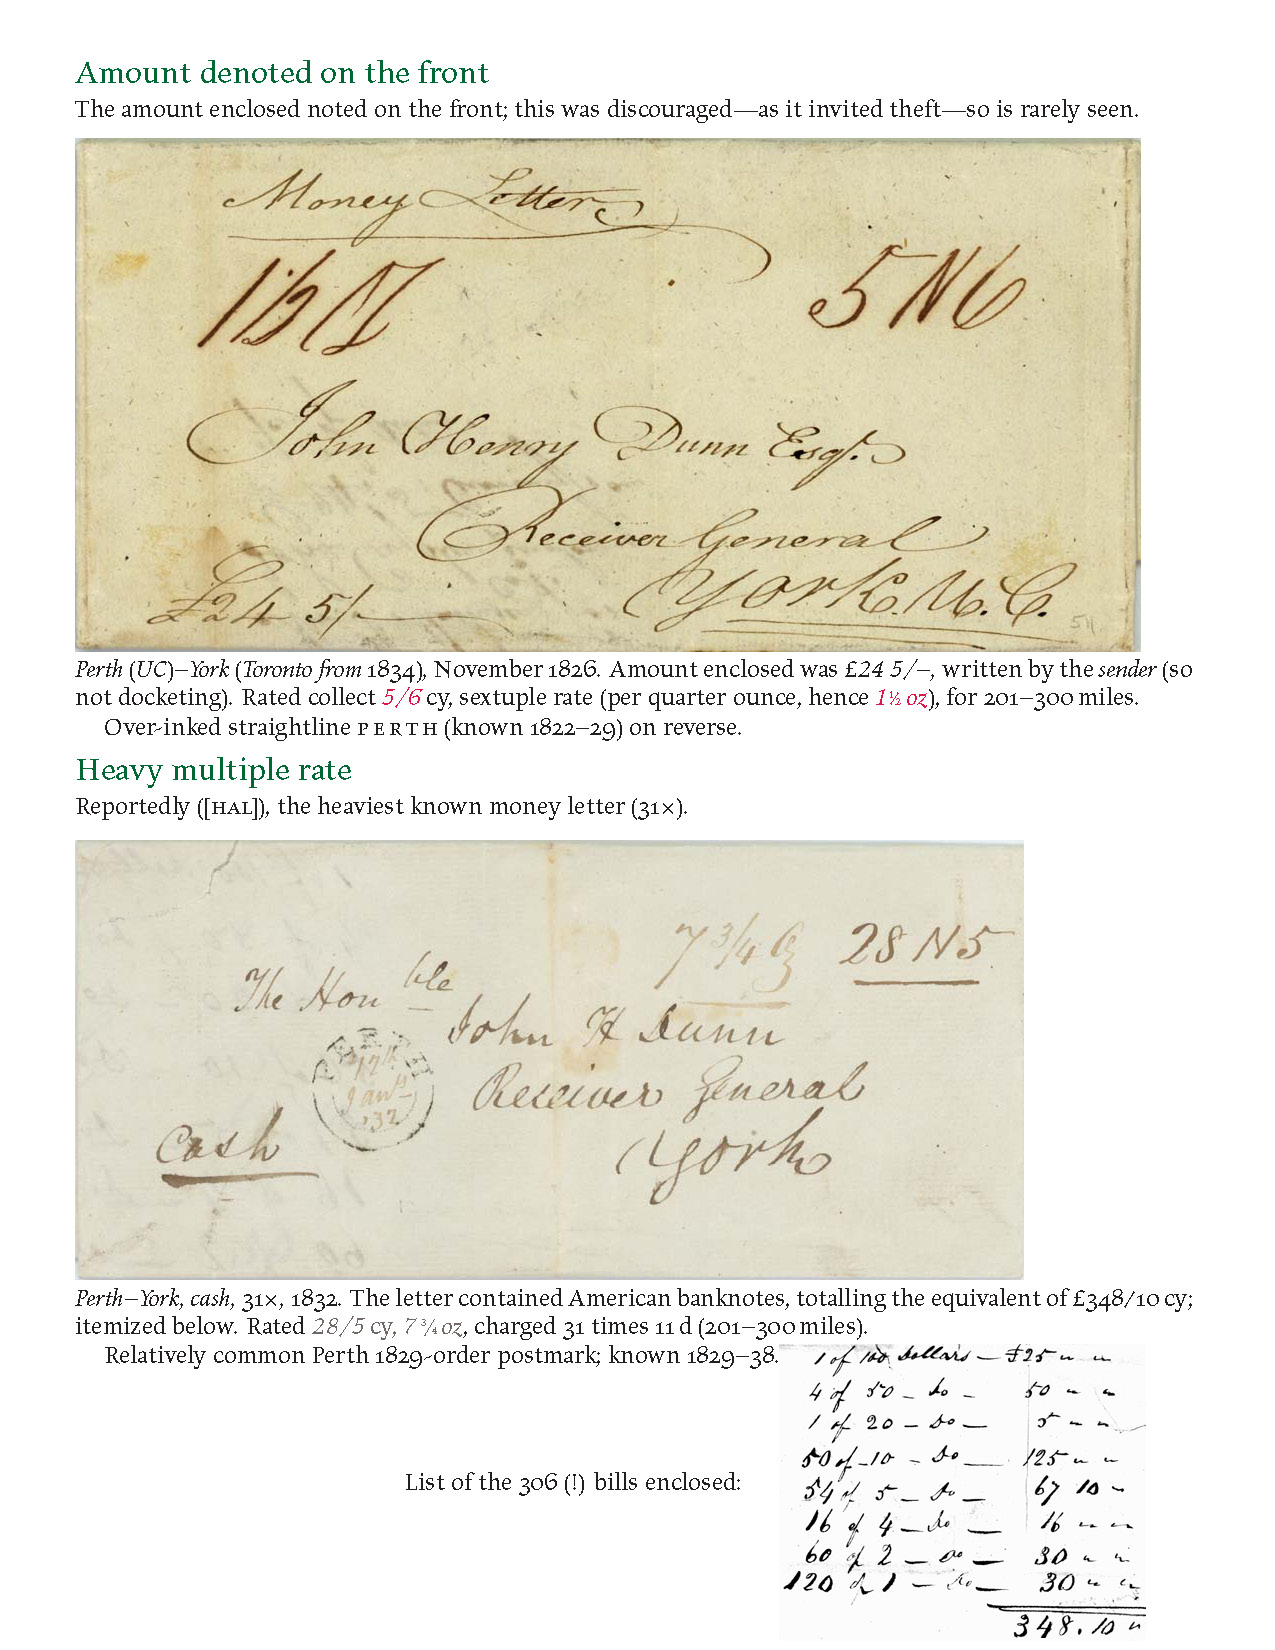 Amount denoted on the front
The amount enclosed noted on the front; this was discouraged—as it invited theft—so is rarely seen.
Money Letter
1½ oz
5 N 6
John Henry Dunn Esqr.
Receiver General
York. U. C.
£24 5/-
Perth (UC)–York (Toronto from 1834), November 1826. Amount enclosed was £24 5/–, written by the sender (so
not docketing). Rated collect 5/6 cy, sextuple rate (per quarter ounce, hence 1½ oz), for 201–300 miles.
Over-inked straightline PERTH (known 1822–29) on reverse.
Heavy multiple rate
Reportedly ([HAL]), the heaviest known money letter (31×).
7 3/4 oz 28 N 5
The Honble
John H Dunn
PERTH
17th
Jany
132
Receiver General
Cash
York
Perth–York, cash, 31×, 1832. The letter contained American banknotes, totalling the equivalent of £348/10 cy;
itemized below. Rated 28/5 cy, 7 3/4 oz, charged 31 times 11 d (201–300 miles).
Relatively common Perth 1829-order postmark; known 1829–38.
List of the 306 (!) bills enclosed:
1 of 100 Dollars — £25 " "
4 of 50 — do — 50 " "
1 of 20 — Do — 5 " "
50 of 10 — Do — 125 " "
54 of 5 — Do — 67 10 "
16 of 4 — do — 16 " "
60 of 2 — do — 30 " "
120 of 1 — Do — 30 " "
348. 10 "